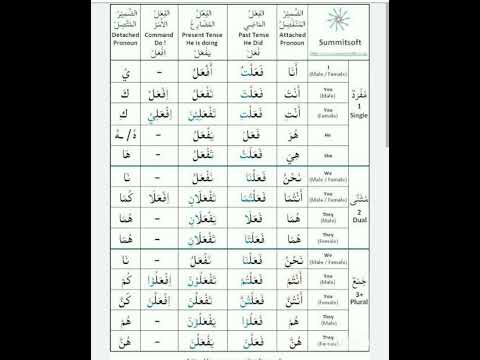 Summitsoft
الضَّمِيْرُ الْمُنْفَصِلُ
Attached Pronoun
الفِعْلُ المَاضِي
Past Tense
He Did
فَعَلَ
الفِعْلُ المُضَارِعُ
Present Tense
He is doing
يَفْعَلُ
الفِعْلُ الأمْرُ
Command
Do !
اِفْعَلْ
الضَّمِيْرُ الْمُتَّصِلُ
Detached Pronoun
مُفْرَدٌ
1
Single
I (Male / Female) أَنَا فَعَلْتُ أَفْعَلُ – يْ
You (Male) أَنْتَ فَعَلْتَ تَفْعَلُ اِفْعَلْ كَ
You (Female) أَنْتِ فَعَلْتِ تَفْعَلِيْنَ اِفْعَلِيْ كِ
He هُوَ فَعَلَ يَفْعَلُ – هُ / ـهُ
She هِيَ فَعَلَتْ تَفْعَلُ – هَا
مُثَنَّى
2
Dual
We (Male / Female) نَحْنُ فَعَلْنَا نَفْعَلُ – نَا
You (Male / Female) أَنْتُمَا فَعَلْتُمَا تَفْعَلَانِ اِفْعَلَا كُمَا
They (Male) هُمَا فَعَلَا يَفْعَلَانِ – هُمَا
They (Female) هُمَا فَعَلَتَا تَفْعَلَانِ – هُمَا
جَمْعٌ
3+
Plural
We (Male / Female) نَحْنُ فَعَلْنَا نَفْعَلُ – نَا
You (Male) أَنْتُمْ فَعَلْتُمْ تَفْعَلُوْنَ اِفْعَلُوْا كُمْ
You (Female) أَنْتُنَّ فَعَلْتُنَّ تَفْعَلْنَ اِفْعَلْنَ كُنَّ
They (Male) هُمْ فَعَلُوْا يَفْعَلُوْنَ – هُمْ
They (Female) هُنَّ فَعَلْنَ يَفْعَلْنَ – هُنَّ